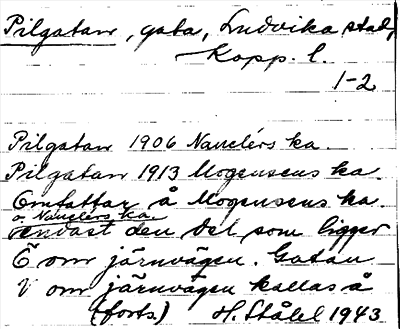 Pilgatan, gata, Ludvika stad,
Kopp. l.
1-2
Pilgatan 1906 Nauclérs ka.
Pilgatan 1913 Mogensens ka.
Omfattar å Mogensens ka.
o. Nauclérs ka.
endast den del som ligger
Ö om järnvägen. Gatan
V om järnvägen kallas å
(forts.) H. Ståhl 1943